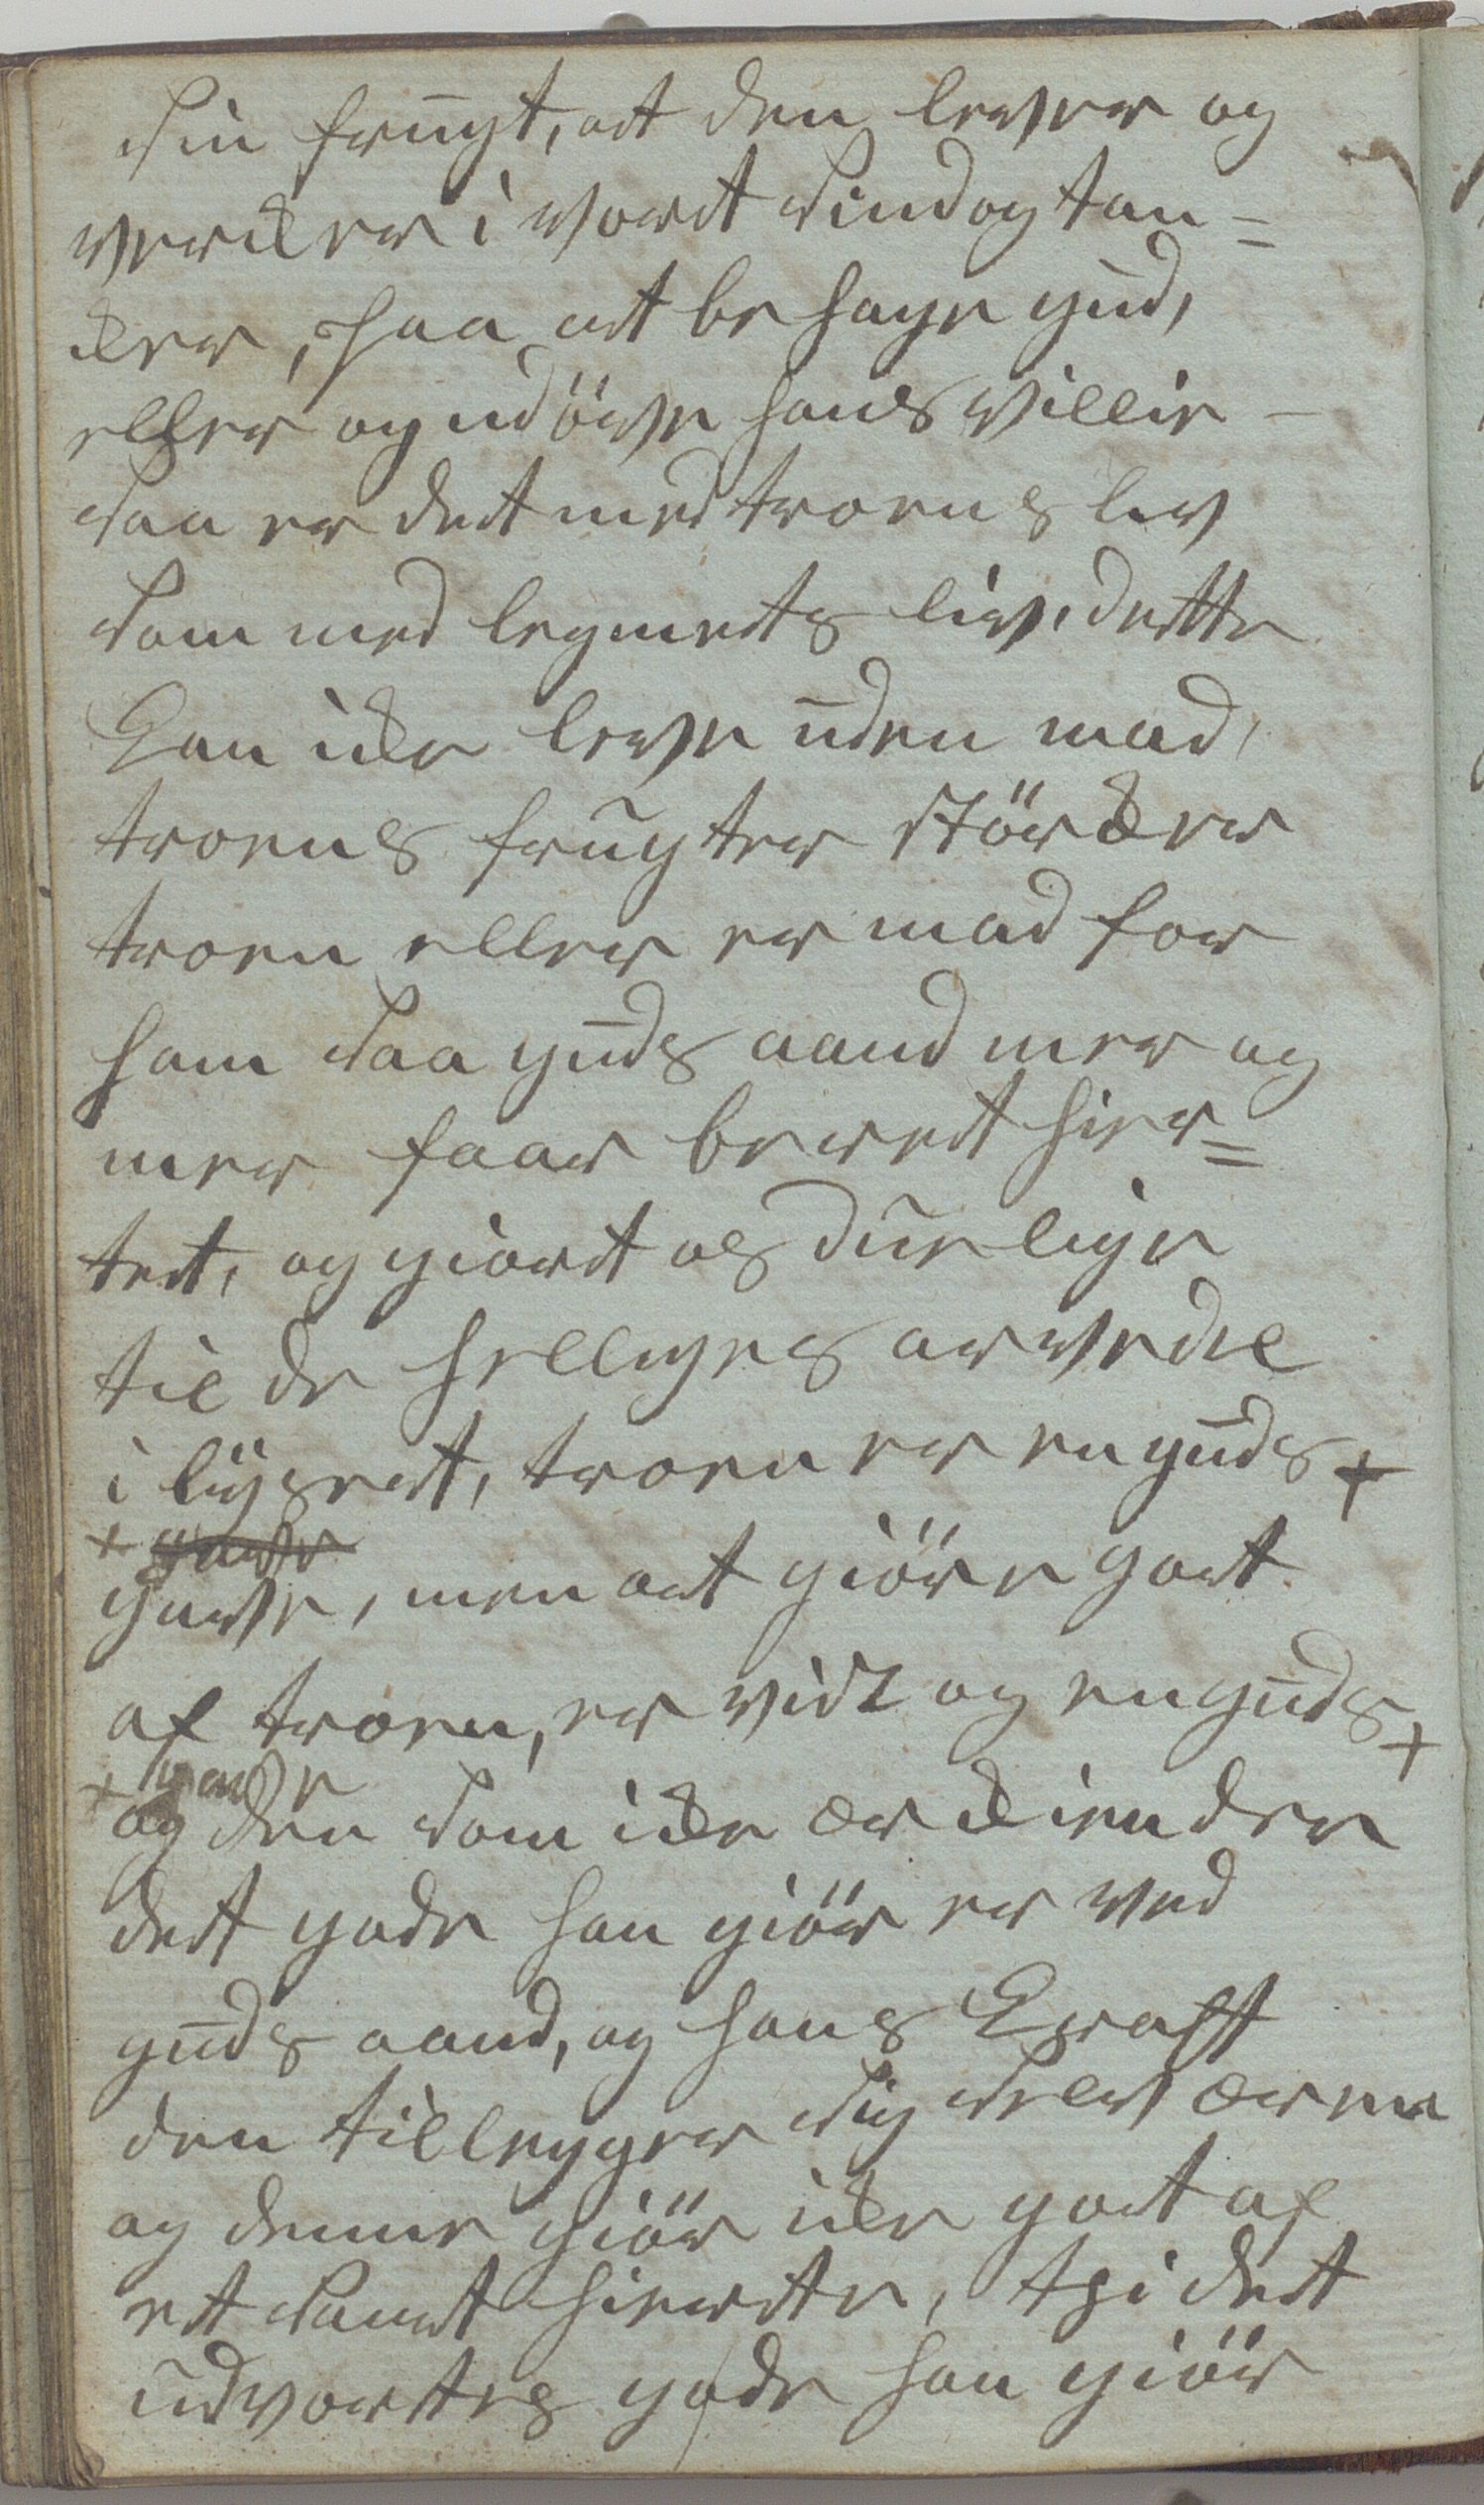 sin frugt, at den lever og
verker i vort sind og tan=
ker, saa at behage gud,
eller og udöve hans villie –
saa er det med troens lev
som med legmets liv, dette
Kan ike leve uden mad,
troens frugter störker
troen eller er mad for
ham saa guds aand mer og
mer faar bereet hier=
tet, og giort os duelige
til de helliges arvedel
i lyset, troen er en guds +
+ gave
gave, men at giöre got
af troen, er vist og en guds +
+ gave
og den som ike erkiender
det gode han giör er ved
guds aand, og hans Krafft
den tillegger sig selv ære
og denne giör ike got af
et sant hierte, thi det
udvortes gode han giör